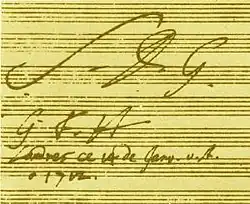 S. D. G.
G. F. H
Londres ce 14 de Janv. v. st.
1712.